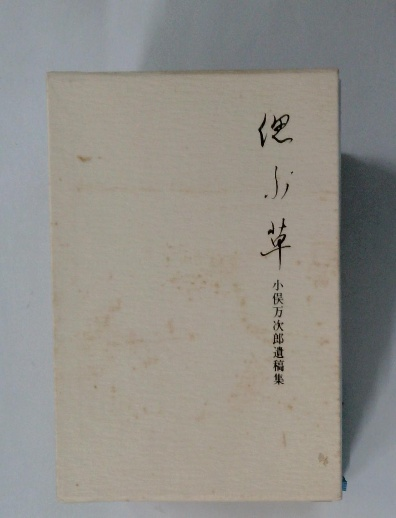 偲ぶ草
小俣万次郎遺稿集